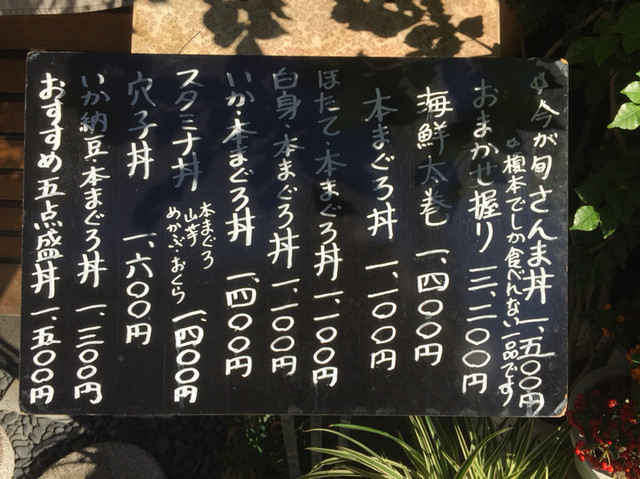 今が旬さんま丼 一、五〇〇円
榎本でしか食べれない一品です
おまかせ握り 三、二〇〇円
海鮮太巻 一、四〇〇円
本まぐろ丼 一、一〇〇円
ほたて・本まぐろ丼 一、一〇〇円
白身・本まぐろ丼 一、一〇〇円
いか・本まぐろ丼 一、四〇〇円
スタミナ丼 一、四〇〇円
本まぐろ
山芋
めかぶ・おくら
穴子丼 一、六〇〇円
いか納豆・本まぐろ丼 一、三〇〇円
おすすめ五点盛丼 一、五〇〇円